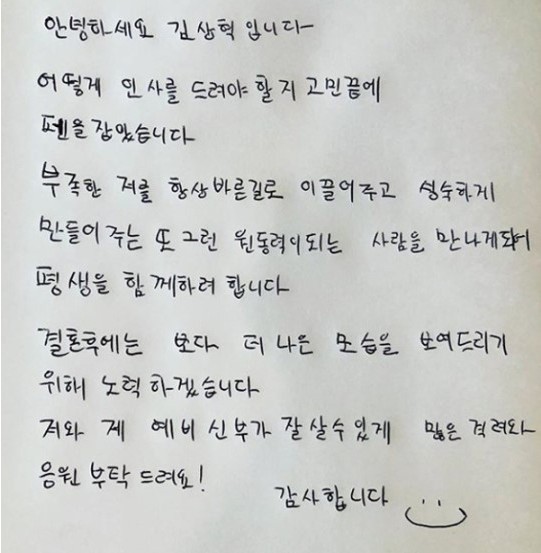 안녕하세요 김상혁입니다
어떻게 인사를 드려야 할지 고민끝에
펜을 잡았습니다
부족한 저를 항상바른길로 이끌어주고 성숙하게
만들어 주는 또 그런 원동력이되는 사람을 만나게되어
평생을 함께하려 합니다
결혼후에는 보다 더 나은 모습을 보여드리기
위해 노력 하겠습니다
저와 제 예비 신부가 잘 살수 있게 많은 격려와
응원 부탁 드려요!
감사합니다